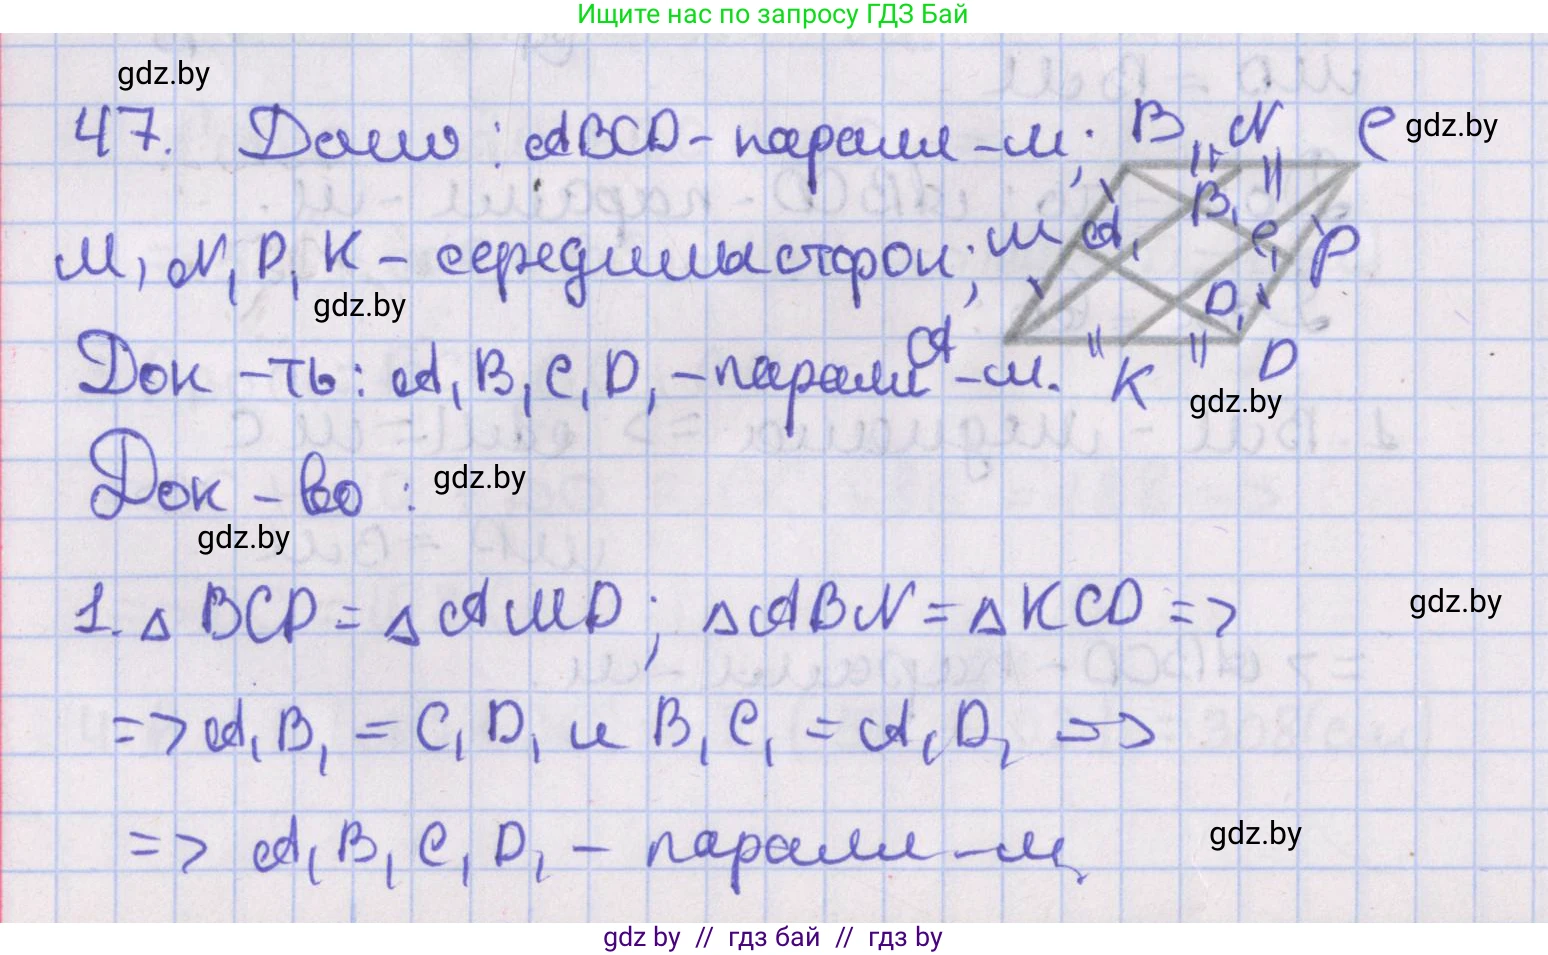 Ищите нас по запросу ГДЗ Бай
gdz.by
47. Дано: ABCD - паралл-м;
B N C
gdz.by
M, N, P, K - середины сторон;
M A₁ B₁ C₁ P
gdz.by
D₁
Док-ть: A₁B₁C₁D₁ - паралл-м.
A K D
gdz.by
Док-во:
gdz.by
gdz.by
1. △ BCP = △ AMD; △ ABN = △ KCD =>
gdz.by
=> A₁B₁ = C₁D₁ и B₁C₁ = A₁D₁ =>
=> A₁B₁C₁D₁ - паралл-м
gdz.by
gdz by // гдз бай // гдз by